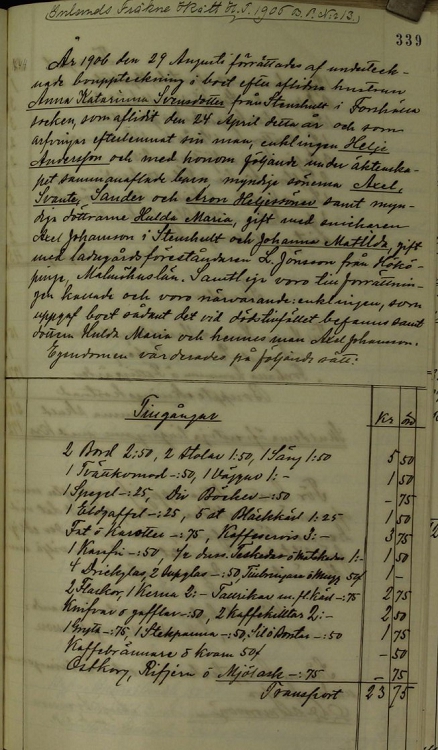 339
År 1906 den 29 Augusti förrättades af underteck-
nade bouppteckning i boet efter aflidna hustrun
Anna Katarinna Svensdotter från Stenshult i Torshälla
socken, som aflidit den 24 April detta år och som
arfvingar efterlemnat sin man, enklingen Helje
Andersson och med honom följande under äktenska-
pet sammanaflade barn myndige sönerna Axel,
Svante, Sander och Aron Heljessöner samt myn-
diga döttrarne Hulda Maria, gift med snickaren
Axel Johansson i Stenshult och Johanna Matilda, gift
med ladugårdsföreståndaren L. Jönsson från Hökö-
pinge, Malmöhuslän. Samtlige voro till förrättnin-
gen kallade och voro närvarande: enklingen, som
uppgaf boet sådant det vid dödstillfället befanns samt
dottern Hulda Maria och hennes man Axel Johansson.
Egendomen värderades på följande sätt:
Tillgångar Kr öre
2 Bord 2:50, 2 Stolar 1:50, 1 Säng 1:50 5 50
1 Tvättkomod -:50, 1 Väggur 1:- 1 50
1 Spegel -:25, Div Böcker -:50 - 75
1 Eldgaffel -:25, 5 st Bläckkärl 1:25 1 50
Fat ö Karotter -:75, Kaffeservis 3:- 3 75
1 Karaffin -:50, ½ duss. Teskedar ö Matskedar 1:- 1 50
4 Dricksglas, 2 Supglas -:50, Tillbringare ö Mugg 50 1 -
2 Flaskor, 1 Kerna 2:- Tallrikar m. fl. kärl -:75 2 75
Knifvar ö gafflar -:50, 2 Kaffekittlar 2:- 2 50
1 Gryta -:75, 1 Stekpanna -:50, Borstar -:50 1 75
Kaffebrännare ö Kvarn 50 - 50
Ostkorg, Rifjern ö Mjölask -:75 - 75
Transport 23 75